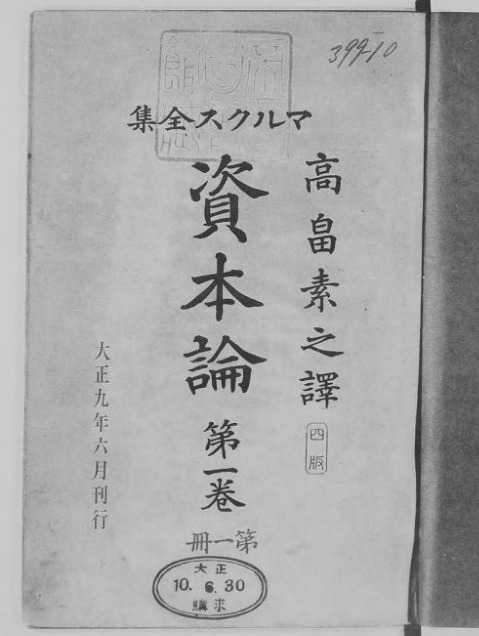 399-10
マルクス全集
高畠素之譯
四版
資本論 第一卷
第一冊
大正九年六月刊行
大正
10. 6. 30
購求